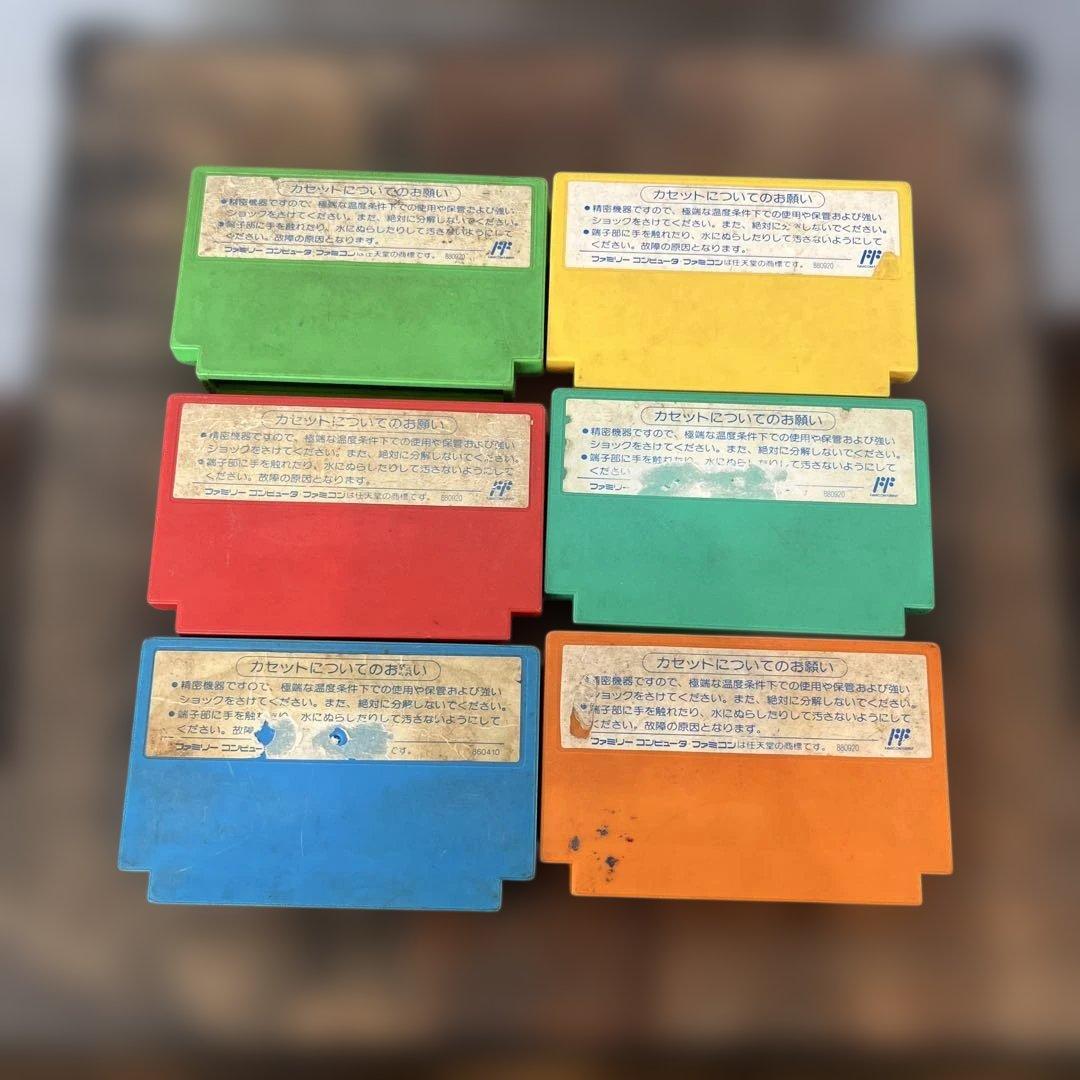 カセットについてのお願い
●精密機器ですので、極端な温度条件下での使用や保管および強い
ショックをさけてください。また、絶対に分解しないでください。
●端子部に手を触れたり、水にぬらしたりして汚さないようにして
ください。故障の原因となります。
ファミリー コンピュータ・ファミコンは任天堂の商標です。 880920
FF
カセットについてのお願い
●精密機器ですので、極端な温度条件下での使用や保管および強い
ショックをさけてください。また、絶対に分解しないでください。
●端子部に手を触れたり、水にぬらしたりして汚さないようにして
ください。故障の原因となります。
ファミリー コンピュータ・ファミコンは任天堂の商標です。 880920
FF
カセットについてのお願い
●精密機器ですので、極端な温度条件下での使用や保管および強い
ショックをさけてください。また、絶対に分解しないでください。
●端子部に手を触れたり、水にぬらしたりして汚さないようにして
ください。故障の原因となります。
ファミリー コンピュータ・ファミコンは任天堂の商標です。 880920
FF
カセットについてのお願い
●精密機器ですので、極端な温度条件下での使用や保管および強い
ショックをさけてください。また、絶対に分解しないでください。
●端子部に手を触れたり、水にぬらしたりして汚さないようにして
ください
ファミリー 880920
FF
カセットについてのお願い
●精密機器ですので、極端な温度条件下での使用や保管および強い
ショックをさけてください。また、絶対に分解しないでください。
●端子部に手を触れたり、水にぬらしたりして汚さないようにして
ください。故障
ファミリー コンピュー です。 860410
カセットについてのお願い
●精密機器ですので、極端な温度条件下での使用や保管および強い
ショックをさけてください。また、絶対に分解しないでください。
●端子部に手を触れたり、水にぬらしたりして汚さないようにして
ください。故障の原因となります。
ファミリー コンピュータ・ファミコンは任天堂の商標です。 880920
FF